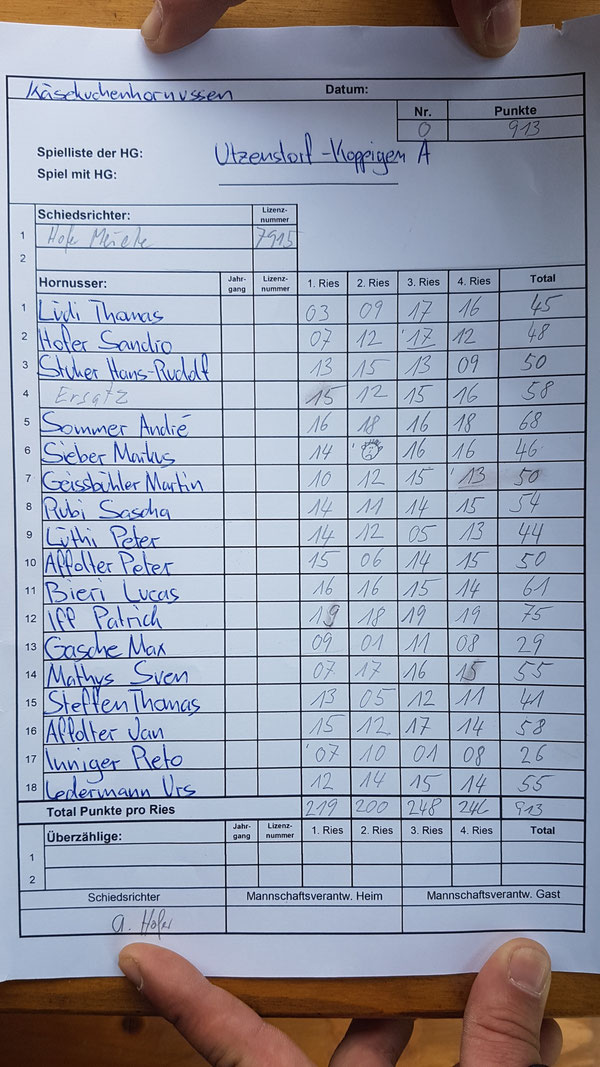 Käsekuchenhornussen Datum:
Nr. Punkte
0 913
Spielliste der HG: Utzenstorf-Koppigen A
Spiel mit HG:
Schiedsrichter: Lizenz-nummer
1 Hofer 7915
2
Hornusser: Jahr-gang Lizenz-nummer 1. Ries 2. Ries 3. Ries 4. Ries Total
1 Lüdi Thomas 03 09 17 16 45
2 Hofer Sandro 07 12 '17 12 48
3 Stuker Hans-Rudolf 13 15 13 09 50
4 Ersatz 15 12 15 16 58
5 Sommer André 16 18 16 18 68
6 Sieber Markus 14 ' 16 16 46
7 Geissbühler Martin 10 12 15 '13 50
8 Rubi Sascha 14 11 14 15 54
9 Lüthi Peter 14 12 05 13 44
10 Affolter Peter 15 06 14 15 50
11 Bieri Lucas 16 16 15 14 61
12 Iff Patrich 19 18 19 19 75
13 Gasche Max 09 01 11 08 29
14 Mathys Sven 07 17 16 15 55
15 Steffen Thomas 13 05 12 11 41
16 Affolter Jan 15 12 17 14 58
17 Inniger Reto '07 10 01 08 26
18 Ledermann Urs 12 14 15 14 55
Total Punkte pro Ries 219 200 248 246 913
Überzählige: Jahr-gang Lizenz-nummer 1. Ries 2. Ries 3. Ries 4. Ries Total
1
2
Schiedsrichter Mannschaftsverantw. Heim Mannschaftsverantw. Gast
a. Hofer